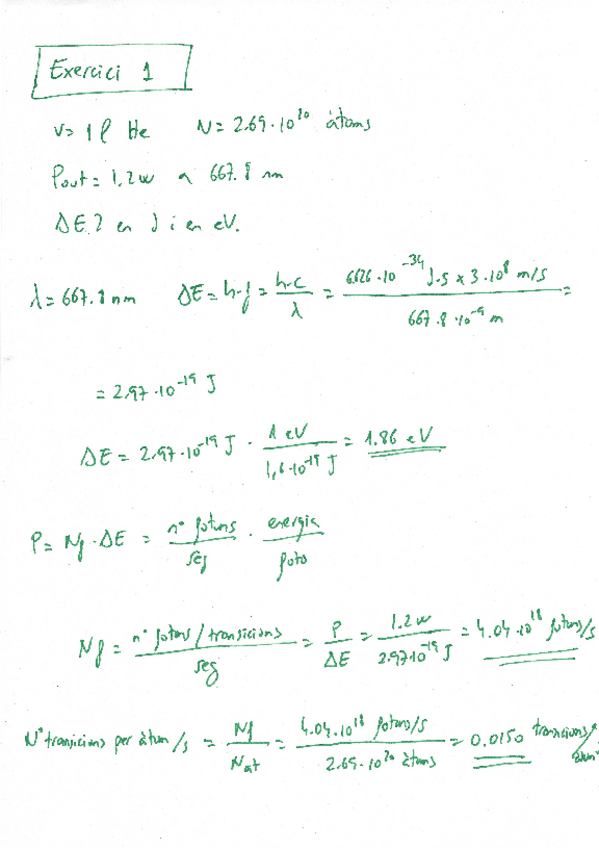 Exercici 1
V= 1 l He N= 2.69·10²⁰ àtoms
Pout = 1.2 w a 667.8 nm
ΔE? en J i en eV.
λ= 667.8 nm ΔE = h·f = h·c / λ = 6.626·10⁻³⁴ J·s x 3·10⁸ m/s / 667.8·10⁻⁹ m =
= 2.97·10⁻¹⁹ J
ΔE = 2.97·10⁻¹⁹ J · 1 eV / 1,6·10⁻¹⁹ J = 1.86 eV
P= Nf·ΔE = nº fotons / seg · energia / foto
Nf = nº fotons / transicions / seg = P / ΔE = 1.2 w / 2.97·10⁻¹⁹ J = 4.04·10¹⁸ fotons/s
Nº transicions per àtom /s = Nf / Nat = 4.04·10¹⁸ fotons/s / 2.69·10²⁰ àtoms = 0.0150 transicions/